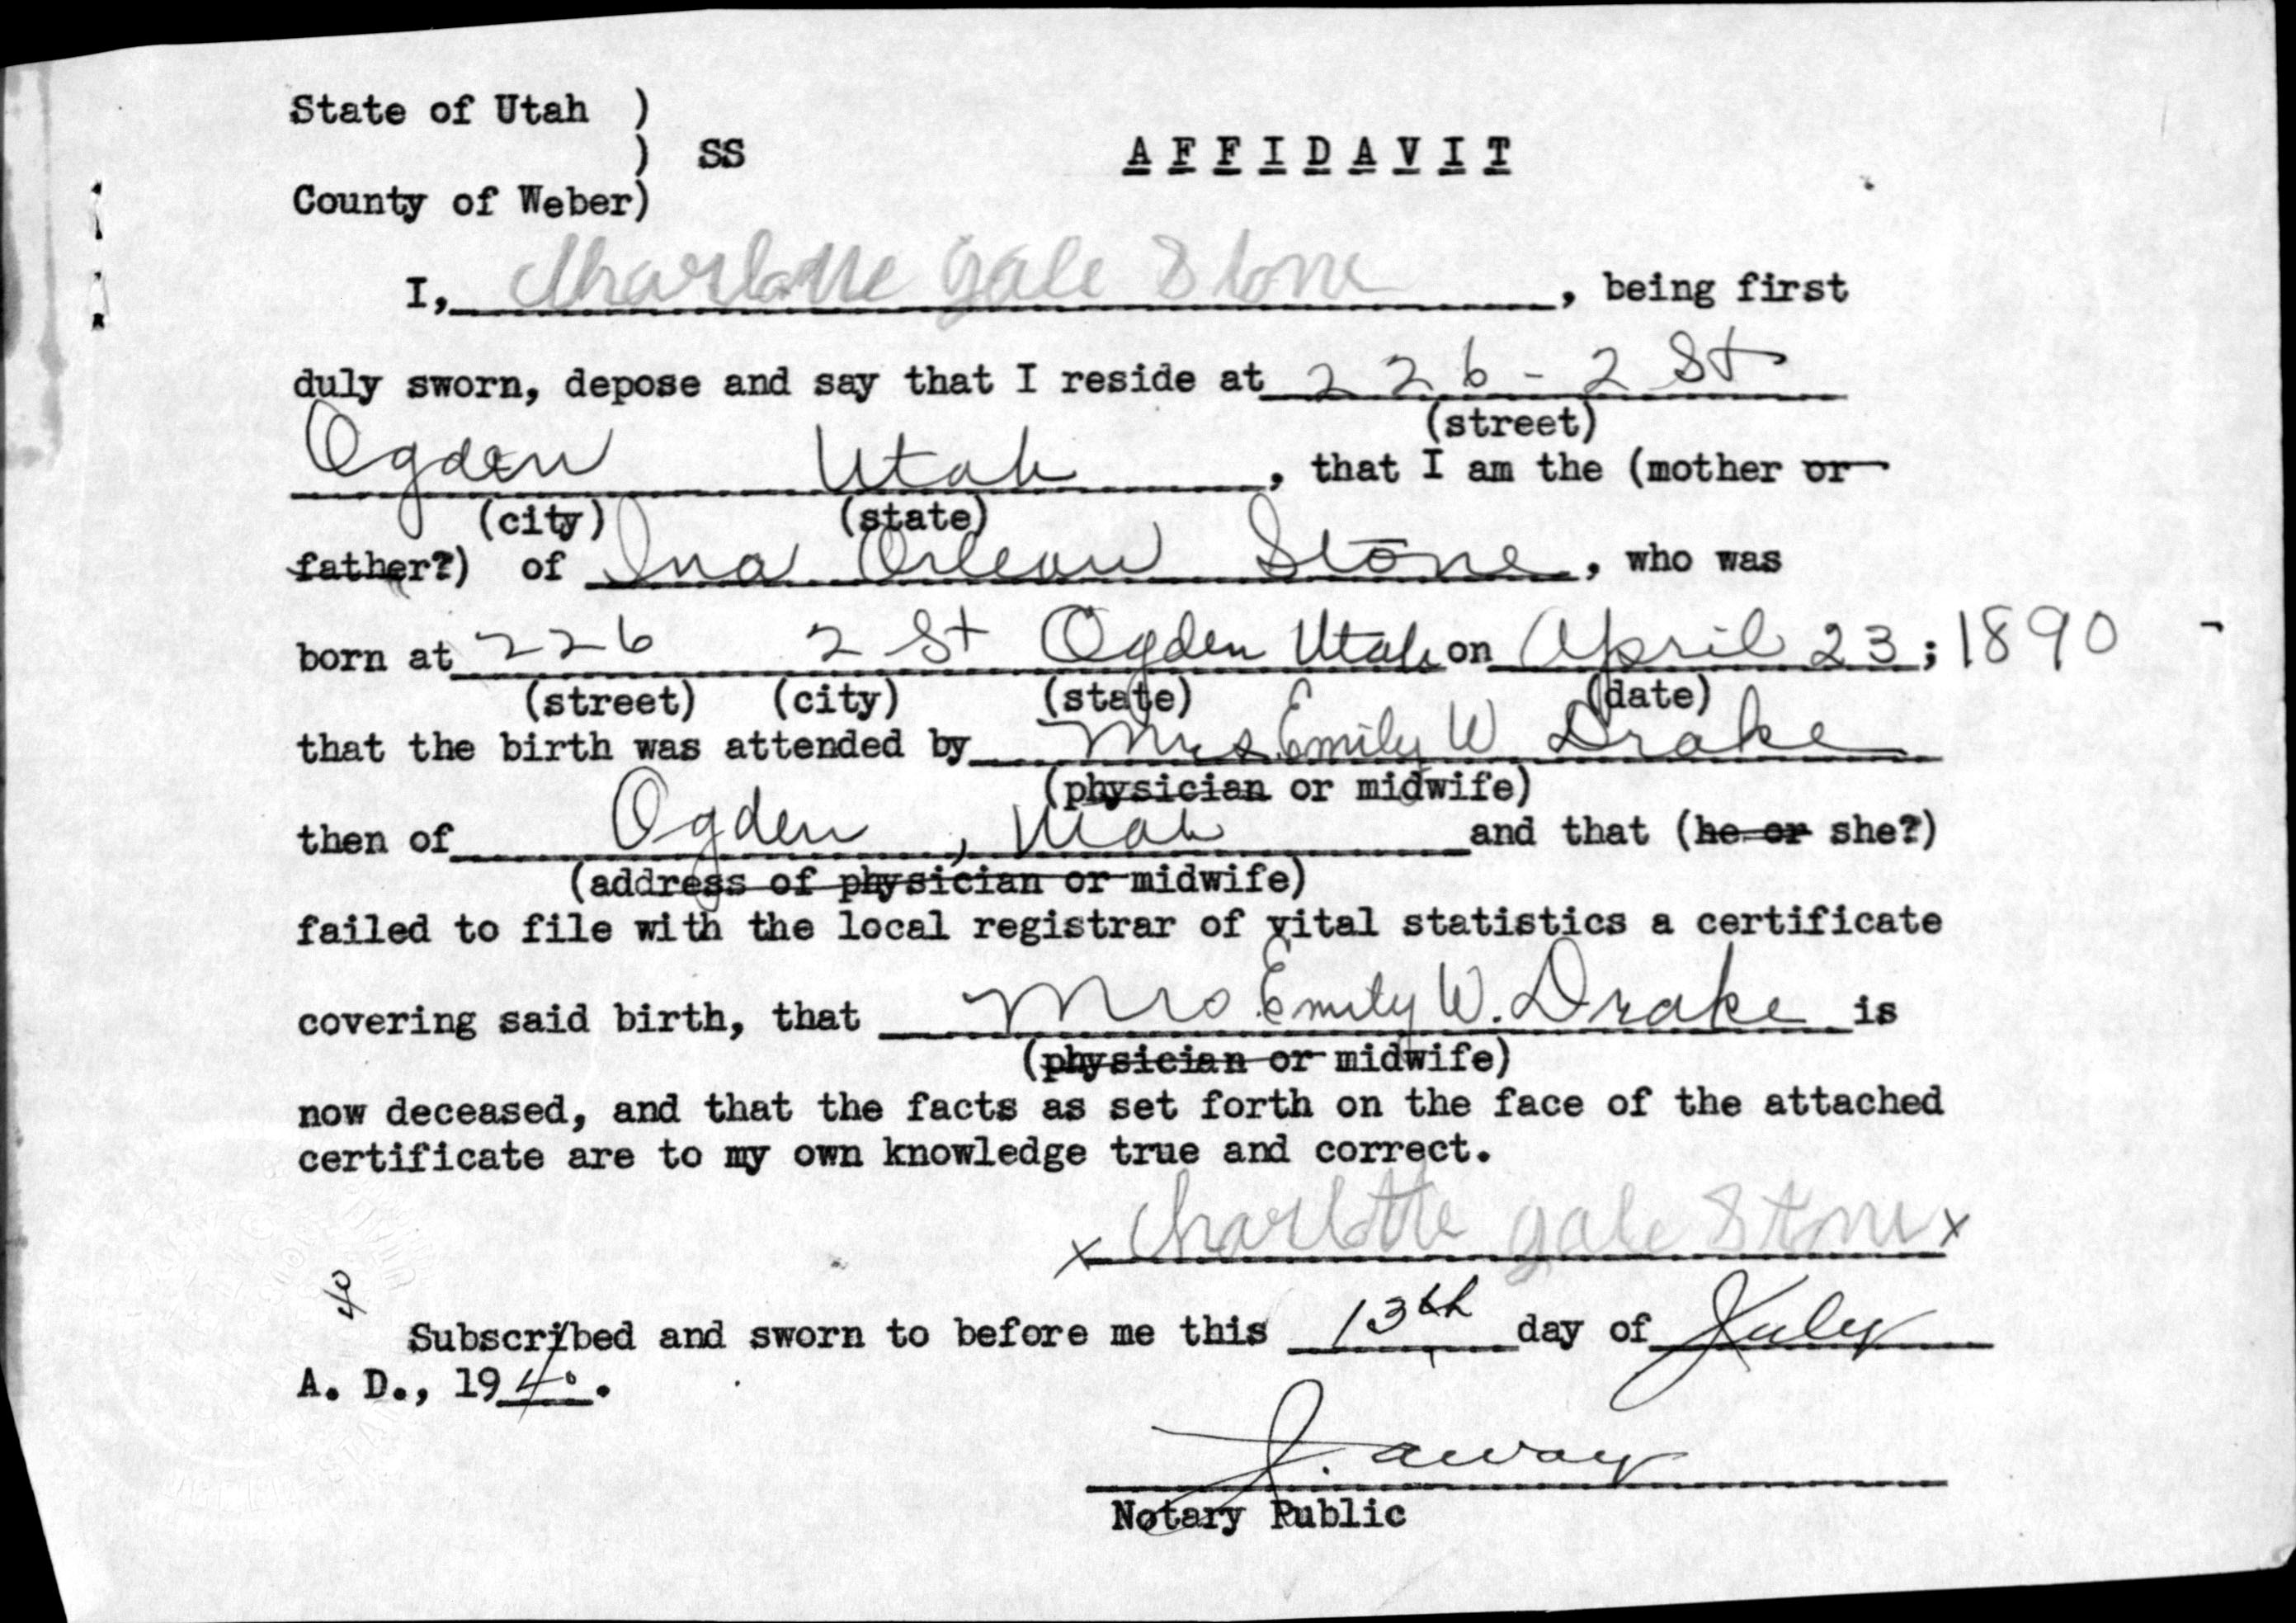 State of Utah )
) SS
AFFIDAVIT
County of Weber)
I, Charlotte Gale Stone, being first
duly sworn, depose and say that I reside at 226 - 2 St
(street)
Ogden Utah, that I am the (mother or
(city) (state)
father?) of Ina Orlean Stone, who was
born at 226 2 St Ogden Utah on April 23; 1890
(street) (city) (state) (date)
that the birth was attended by Mrs. Emily W Drake
(physician or midwife)
then of Ogden, Utah and that (he or she?)
(address of physician or midwife)
failed to file with the local registrar of vital statistics a certificate
covering said birth, that Mrs Emily W. Drake is
(physician or midwife)
now deceased, and that the facts as set forth on the face of the attached
certificate are to my own knowledge true and correct.
x Charlotte Gale Stone x
40
Subscribed and sworn to before me this 13th day of July
A. D., 1940.
Notary Public